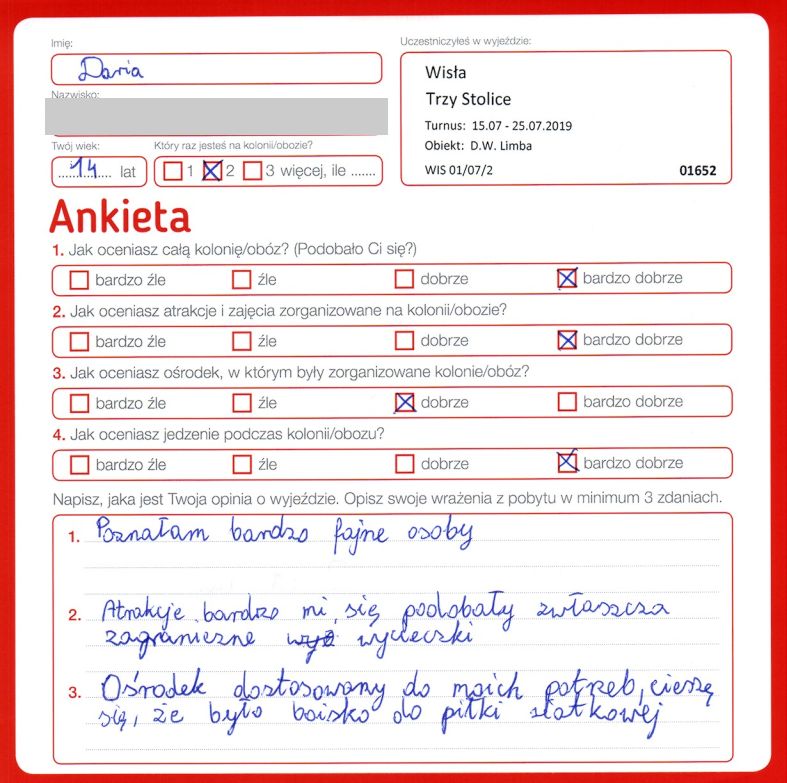 Imię:
Daria
Nazwisko:
Twój wiek:
14 lat
Który raz jesteś na kolonii/obozie?
1 2 3 więcej, ile .......
Uczestniczyłeś w wyjeździe:
Wisła
Trzy Stolice
Turnus: 15.07 - 25.07.2019
Obiekt: D.W. Limba
WIS 01/07/2 01652
Ankieta
1. Jak oceniasz całą kolonię/obóz? (Podobało Ci się?)
bardzo źle źle dobrze bardzo dobrze
2. Jak oceniasz atrakcje i zajęcia zorganizowane na kolonii/obozie?
bardzo źle źle dobrze bardzo dobrze
3. Jak oceniasz ośrodek, w którym były zorganizowane kolonie/obóz?
bardzo źle źle dobrze bardzo dobrze
4. Jak oceniasz jedzenie podczas kolonii/obozu?
bardzo źle źle dobrze bardzo dobrze
Napisz, jaka jest Twoja opinia o wyjeździe. Opisz swoje wrażenia z pobytu w minimum 3 zdaniach.
1. Poznałam bardzo fajne osoby
2. Atrakcje bardzo mi się podobały zwłaszcza
zagraniczne wycieczki
3. Ośrodek dostosowany do moich potrzeb, cieszę
się, że było boisko do piłki siatkowej